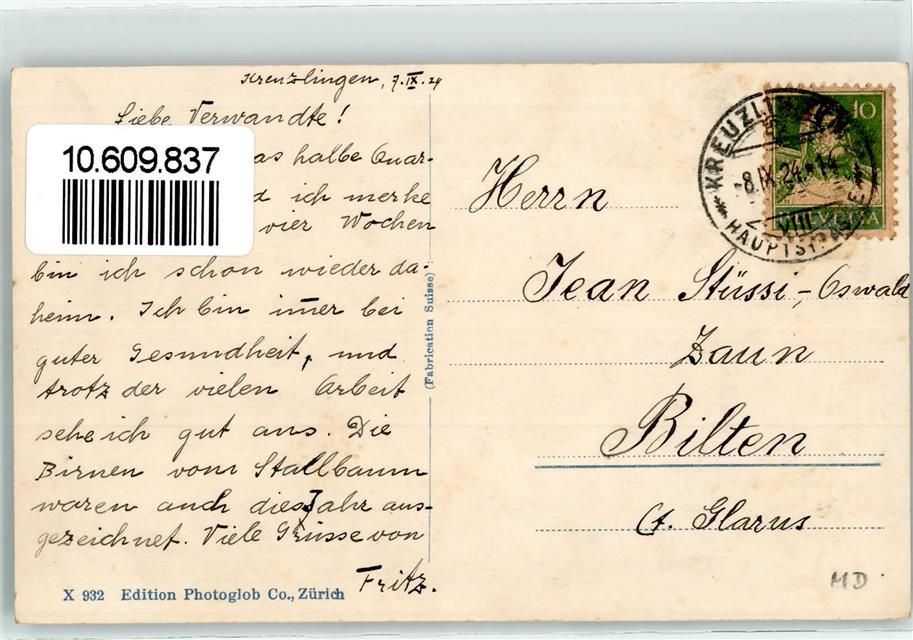 Kreuzlingen, 7.IX.24
Liebe Verwandte!
10.609.837
as halbe Quar-
d ich merke
vier Wochen
bin ich schon wieder da-
heim. Ich bin imer bei
guter Gesundheit, und
trotz der vielen Arbeit
sehe ich gut aus. Die
Birnen vom Stallbaum
waren auch dies Jahr aus-
gezeichnet. Viele Grüsse von
Fritz.
X 932 Edition Photoglob Co., Zürich
(Fabrication Suisse)
KREUZLINGEN
-8.IX.24.-14
VIII
HAUPTSTRASSE
10
HELVETIA
Herrn
Jean Stüssi-Oswald
Zaun
Bilten
Ct. Glarus
MD